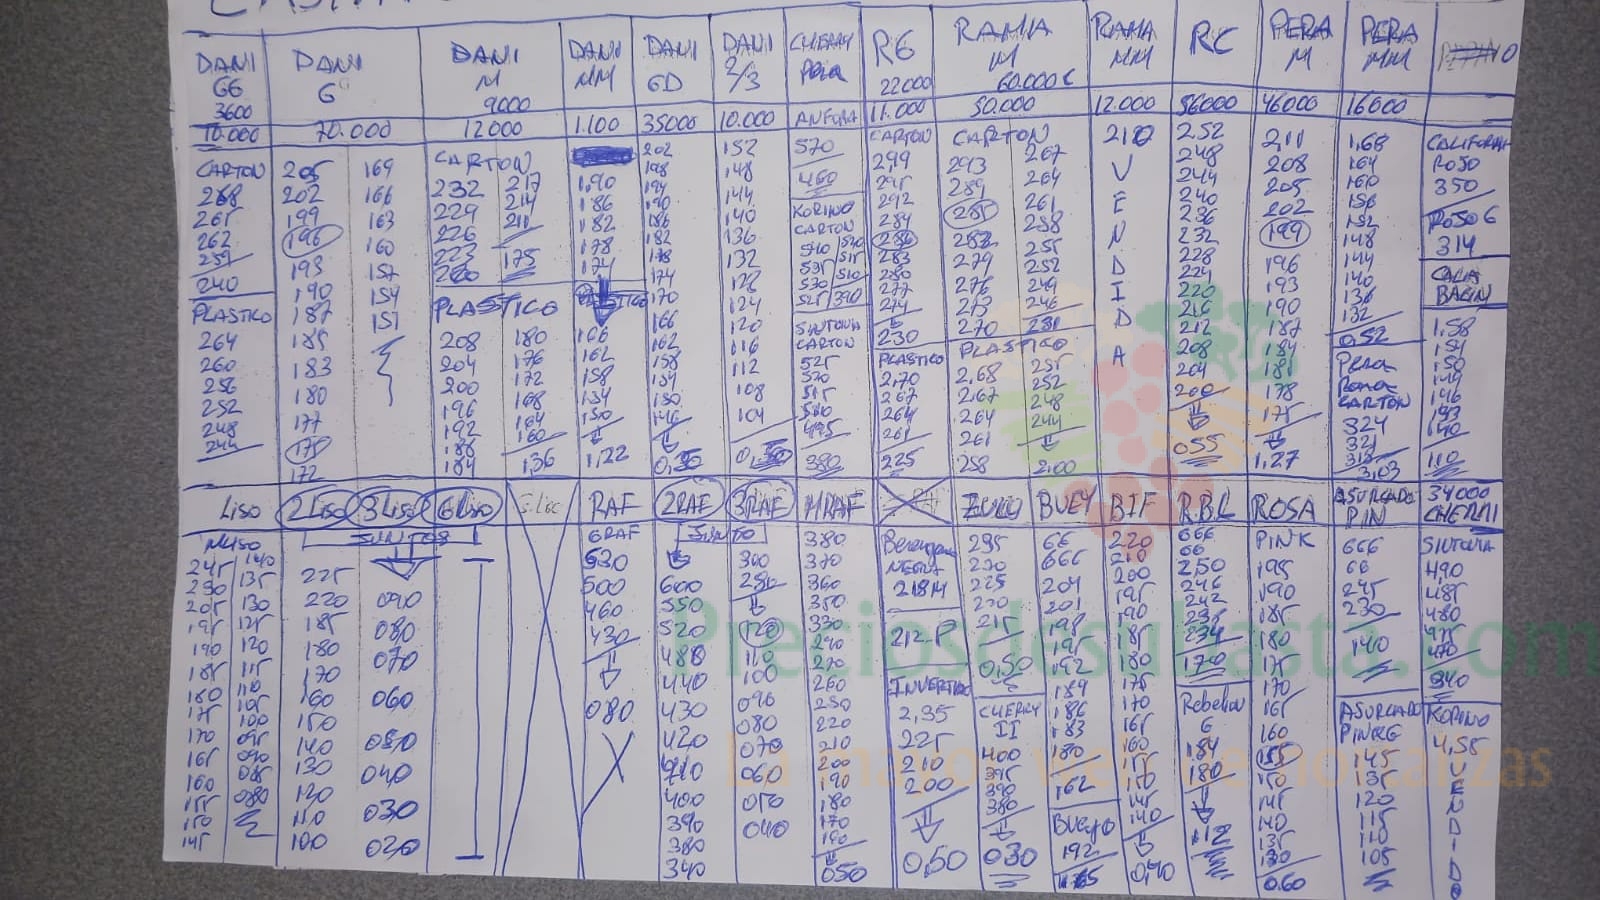 DANI GG 3600
DANI G
DANI M 9000
DANI MM
DANI GD
DANI 2/3
CHERRY Pera
RG 22000
RAMA M 60.000 €
RAMA MM
RC
PERA M
PERA MM
10.000
70.000
12000
1.100
35000
10.000
ANFORA
11.000
50.000
12.000
56000
46000
16000
CARTON
268
265
262
259
240
PLASTICO
264
260
256
252
248
244
205
202
199
196
193
190
187
185
183
180
177
175
172
169
166
163
160
157
154
151
CARTON
232
229
226
223
220
217
214
211
175
PLASTICO
208
204
200
196
192
188
184
180
176
172
168
164
160
136
1,90
186
182
178
174
166
162
158
154
150
1,22
202
198
194
190
186
182
178
174
170
166
162
158
154
150
146
152
148
144
140
136
132
128
124
120
116
112
108
104
570
460
KORINO
CARTON
540 520
535 515
530 510
525 390
SINTONIA
CARTON
525
520
515
510
495
380
CARTON
299
295
292
289
286
283
280
277
274
230
PLASTICO
2,70
267
264
261
225
CARTON
293
289
285
282
279
276
273
270
267
264
261
258
255
252
249
246
231
PLASTICO
2,68
2,67
264
261
258
255
252
248
244
2,00
210
V
E
N
D
I
D
A
2.52
248
244
240
236
232
228
224
220
216
212
208
204
200
055
211
208
205
202
199
196
193
190
187
184
181
178
175
1,27
1,68
164
160
156
152
148
144
140
136
132
0,52
PERA
RAMA
CARTON
324
321
318
3,03
CALIFORNIA
ROJO
350
ROJO G
314
CALA
BACIN
1,58
154
150
149
146
143
140
110
Liso
2 Liso
3 Liso
G Liso
RAF
2 RAF
3 RAF
MRAF
BUEY
BIF
R.B.L
ROSA
ASURCADO PIN
34000 CHERRI
JUNTOS
245
230
205
195
190
185
180
175
170
165
160
155
150
145
140
135
130
125
120
115
110
105
100
095
090
085
080
225
220
185
180
170
160
150
140
130
120
110
100
090
080
070
060
050
040
030
020
GRAF
530
500
460
430
080
JUNTO
600
550
520
480
440
430
420
410
400
390
380
340
300
250
120
110
100
090
080
070
060
050
040
380
370
360
350
330
290
270
260
250
220
210
200
190
180
170
160
050
Berengena
NEGRA
218 M
212 P
INVERTIDO
2,35
225
210
200
0,50
235
230
225
220
215
0,50
CHERRY
II
400
395
390
380
030
66
666
204
201
198
195
192
189
186
183
180
162
BUEY G
192
165
220
210
200
195
190
185
180
175
170
165
160
155
150
145
140
0,40
666
66
250
246
242
238
234
170
Rebelion
6
184
180
112
PINK
195
190
185
180
175
170
165
160
155
150
145
140
135
130
0.60
666
66
245
230
140
ASURCADO
PINK G
145
135
120
115
110
105
SINTONIA
490
485
480
475
470
340
KORINO
4,55
V
E
N
D
I
D
O
Preciosdesubasta.com